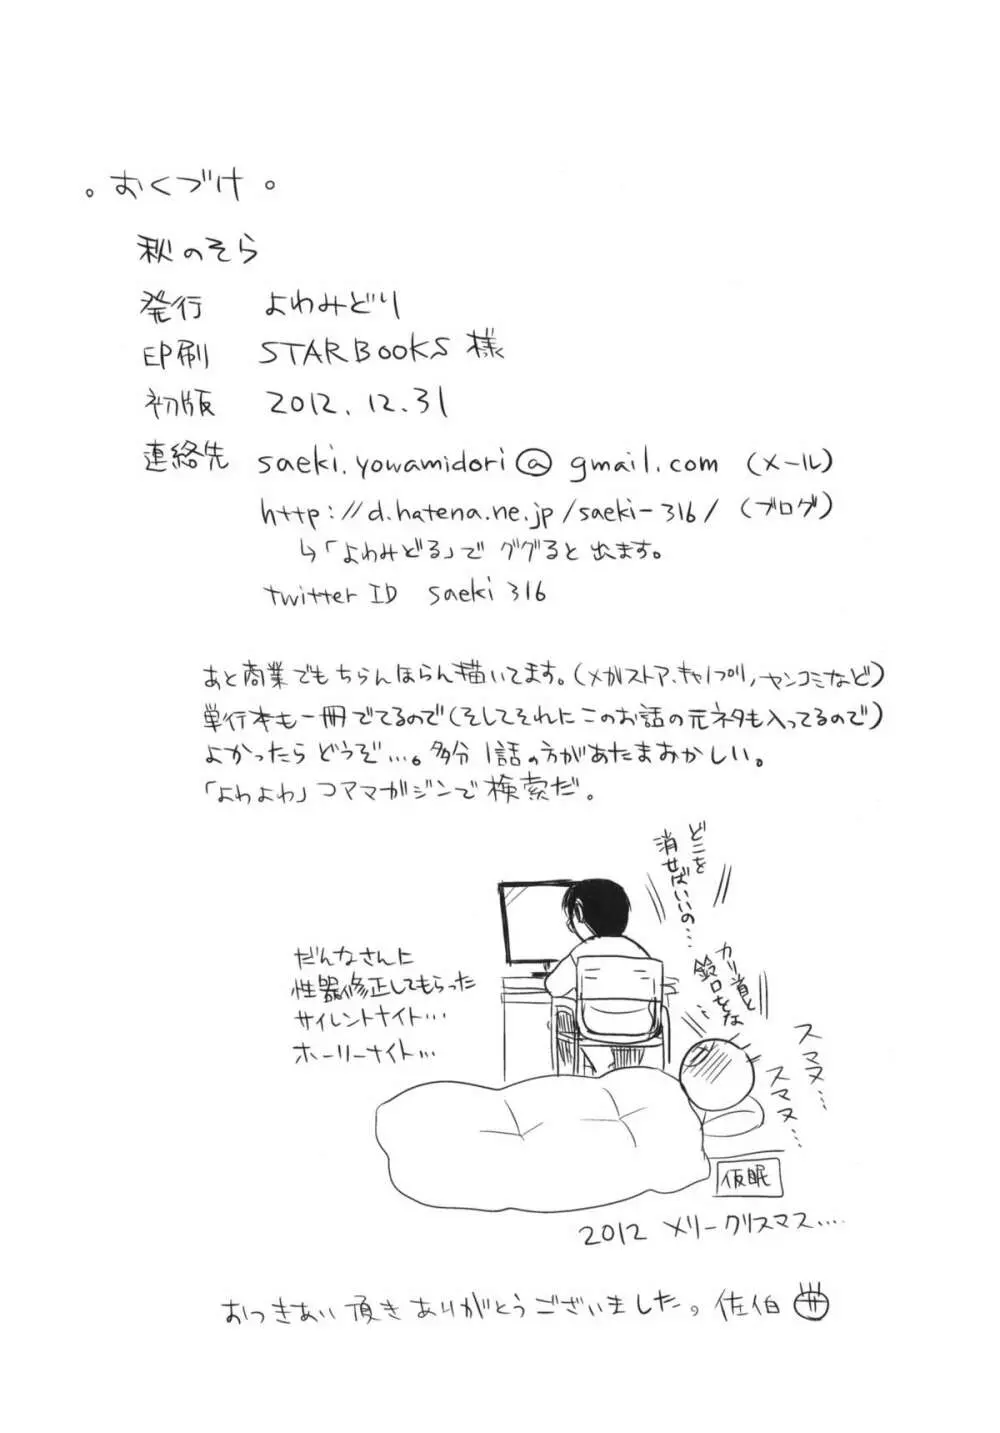 。おくづけ。
秋のそら
発行 よわみどり
印刷 STARBOOKS 様
初版 2012.12.31
連絡先 saeki.yowamidori@gmail.com (メール)
http://d.hatena.ne.jp/saeki-316/ (ブログ)
↳「よわみどる」で ググると出ます。
twitter ID saeki316
あと商業でもちらんほらん描いてます。(メガストア、キャノプリ、ヤンコミなど)
単行本も一冊でてるので(そしてそれにこのお話の元ネタも入ってるので)
よかったらどうぞ…。多分1話の方があたまおかしい。
「よわよわ」コアマガジンで検索だ。
どこを
消せばいいの…
カリ首と
鈴口をな…
だんなさんに
性器修正してもらった
サイレントナイト…
ホーリーナイト…
スマヌ…
スマヌ…
仮眠
2012 メリークリスマス....
おつきあい頂きありがとうございました。佐伯 サ